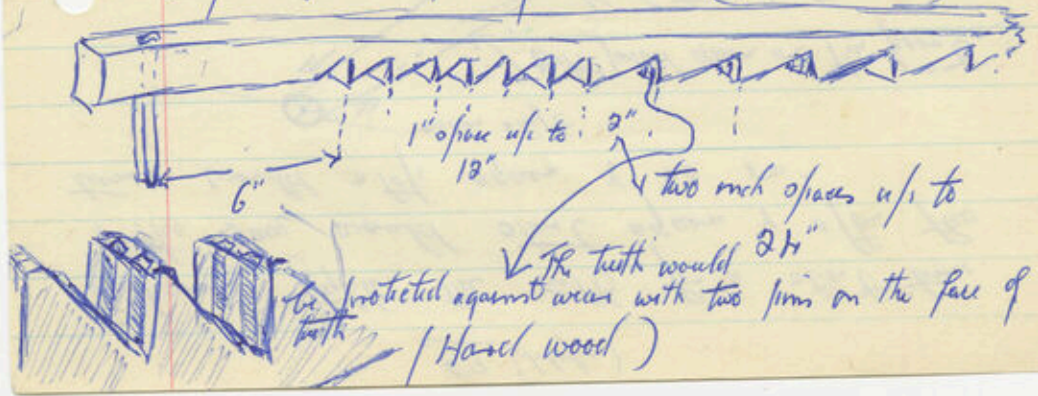 1" space up to 2"
12"
6"
two inch spaces up to
24"
The teeth would
be protected against wear with two pins on the face of
teeth
(Hard wood)